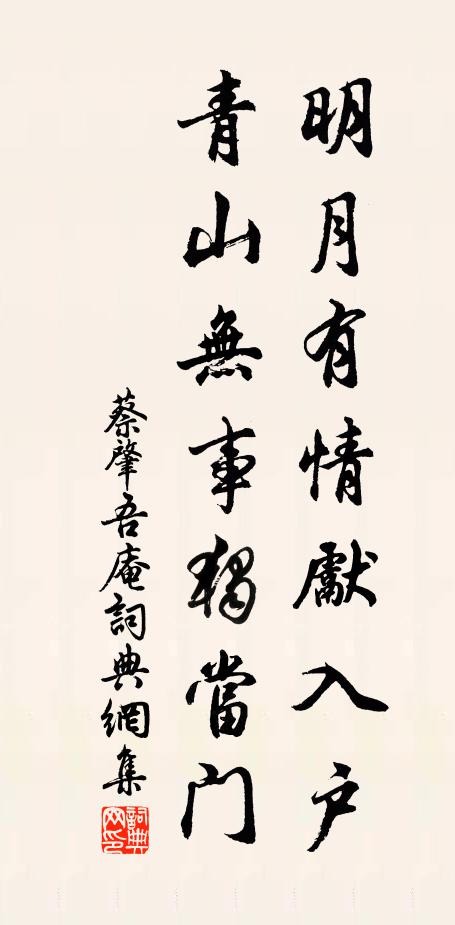 明月有情獻入戶
青山無事獨當門
蔡肇吾庵詞典網集
詞典網印